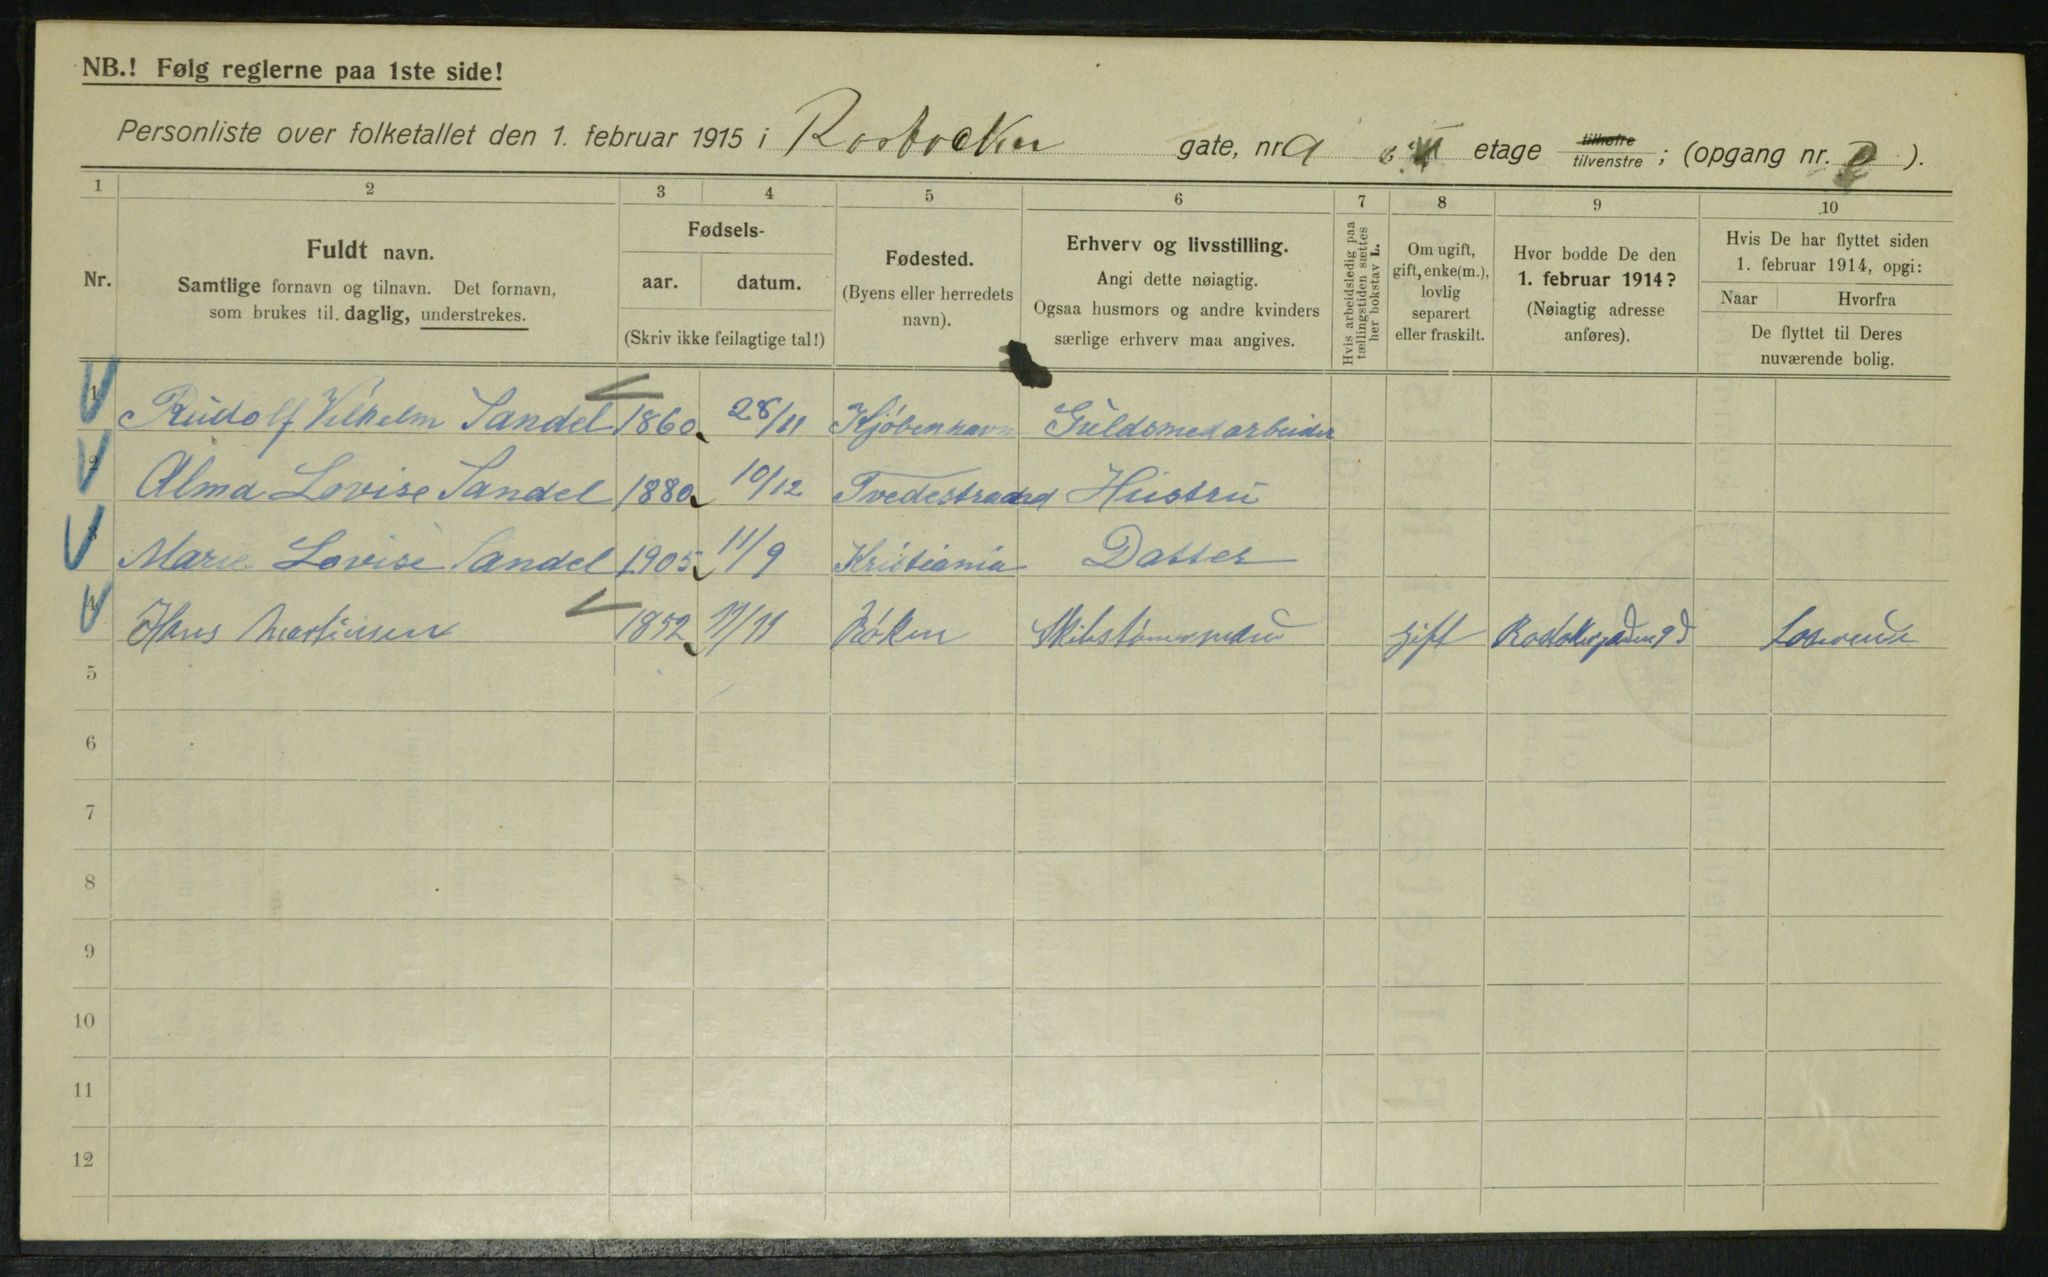 NB.! Følg reglerne paa 1ste side!
Personliste over folketallet den 1. februar 1915 i Rostocker gate, nr. 9 etage tilhøire tilvenstre; (opgang nr. ).
1 2 3 4 5 6 7 8 9 10
Nr.
Fuldt navn.
Samtlige fornavn og tilnavn. Det fornavn,
som brukes til daglig, understrekes.
Fødsels-
aar. datum.
(Skriv ikke feilagtige tal!)
Fødested.
(Byens eller herredets
navn).
Erhverv og livsstilling.
Angi dette nøiagtig.
Ogsaa husmors og andre kvinders
særlige erhverv maa angives.
Hvis arbeidsledig paa
tællingstiden sættes
her bokstav L.
Om ugift,
gift, enke(m.),
lovlig
separert
eller fraskilt.
Hvor bodde De den
1. februar 1914?
(Nøiagtig adresse
anføres).
Hvis De har flyttet siden
1. februar 1914, opgi:
Naar Hvorfra
De flyttet til Deres
nuværende bolig.
1 Rudolf Vilhelm Sandel 1860 28/11 Kjøbenhavn Guldsmedarbeider
2 Alma Lovise Sandel 1880 10/12 Tvedestrand Hustru
3 Marie Lovise Sandel 1905 11/9 Kristiania Datter
4 Hans Martinsen 1852 11/11 Røken gift Losjerende
5
6
7
8
9
10
11
12